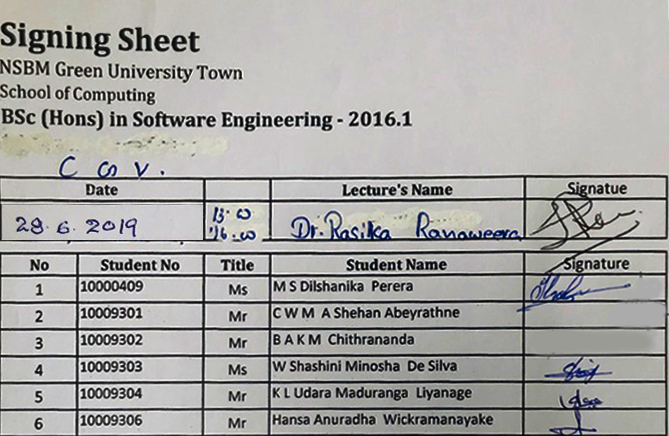 Signing Sheet
NSBM Green University Town
School of Computing
BSc (Hons) in Software Engineering - 2016.1
C G V.
Date Lecture's Name Signatue
28.6.2019 13.00 Dr. Rasika Ranaweera
16.00
No Student No Title Student Name Signature
1 10000409 Ms M S Dilshanika Perera
2 10009301 Mr C W M A Shehan Abeyrathne
3 10009302 Mr B A K M Chithrananda
4 10009303 Ms W Shashini Minosha De Silva
5 10009304 Mr K L Udara Maduranga Liyanage
6 10009306 Mr Hansa Anuradha Wickramanayake